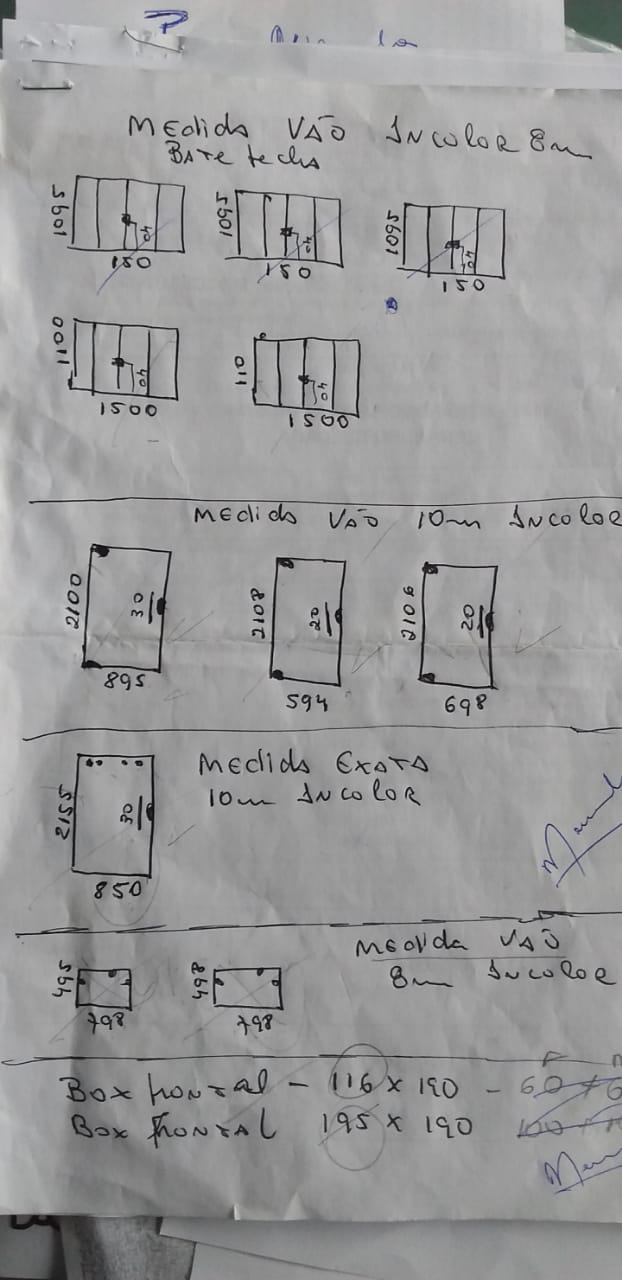 Medida VÃO INCOLOR 8m
BATE fecha
1095 1095 1095
04 04 04
150 150 150
1100 110
04 04
1500 1500
Medida VÃO 10m INCOLOR
2100 30 2108 20 2106 20
895 594 698
Medida EXATA
10m INCOLOR
2155 30
850
Medida VÃO
8m INCOLOR
495 498
798 798
Box frontal - 116 x 190 - 60 + 6
Box frontal 195 x 190